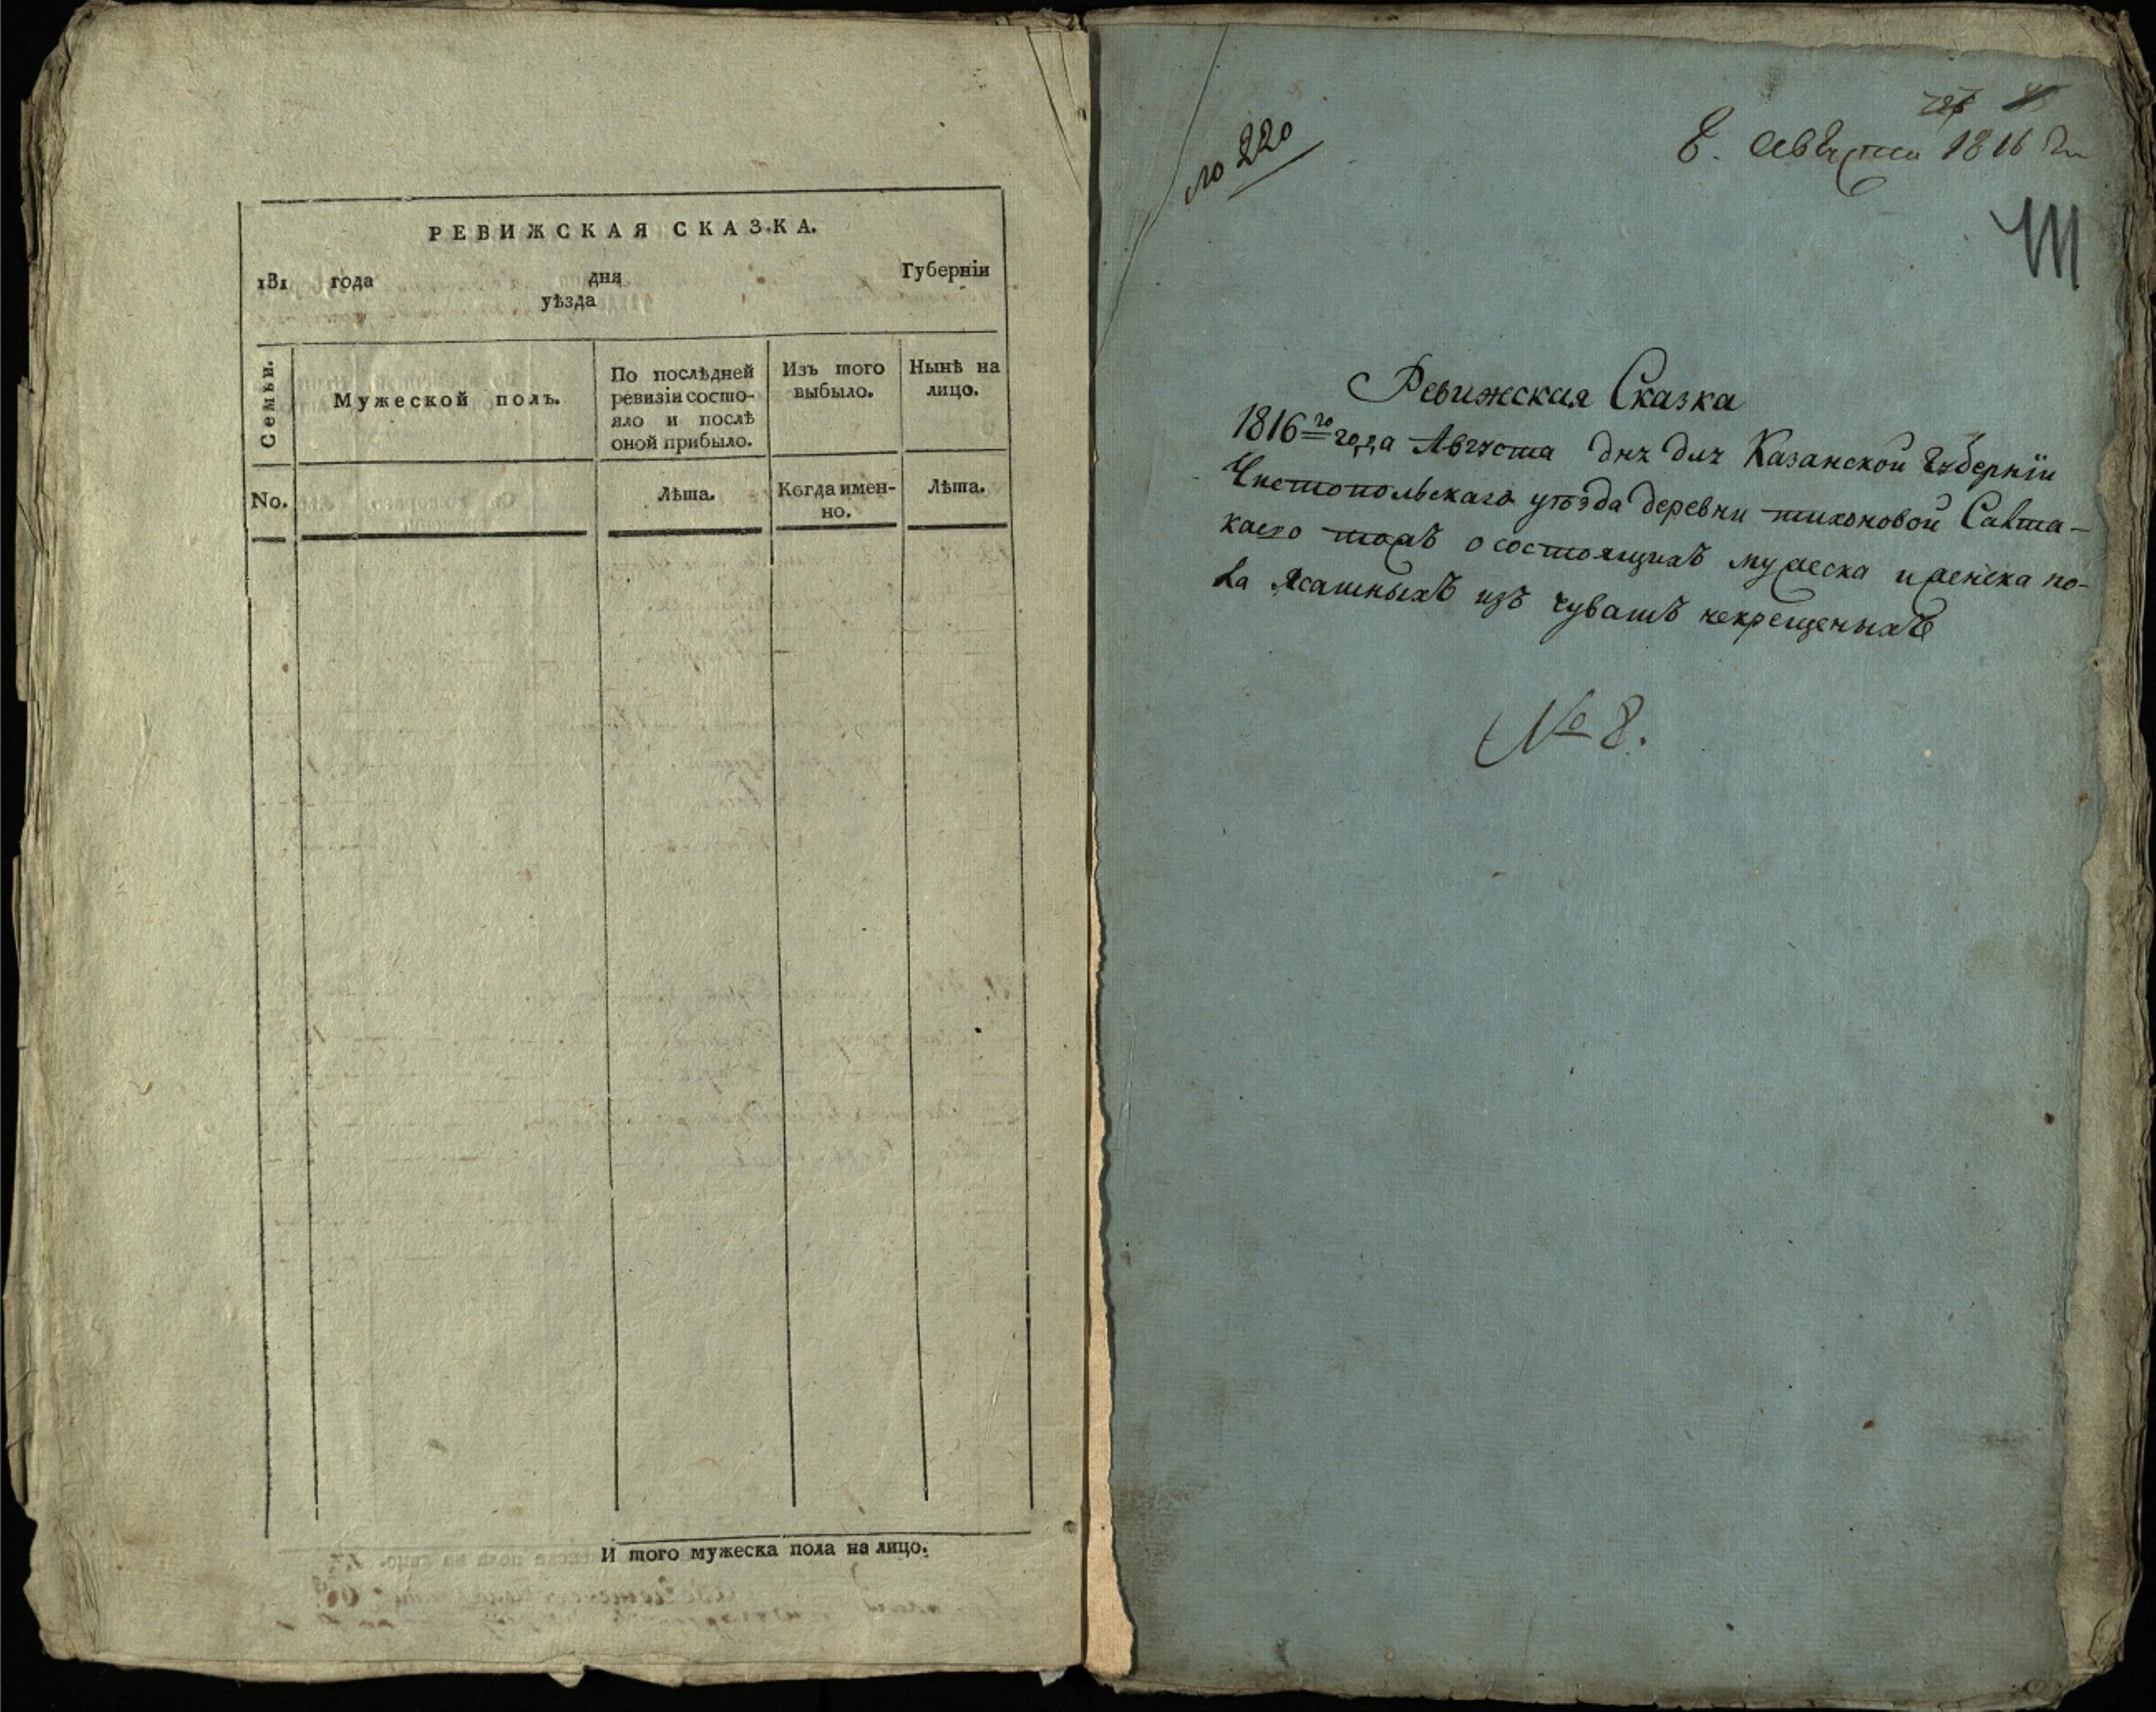 РЕВИЖСКАЯ СКАЗКА.
181 года дня Губерніи
уѣзда
Семьи.
Мужеской полъ.
По послѣдней
ревизіи состо-
яло и послѣ
оной прибыло.
Изъ того
выбыло.
Нынѣ на
лицо.
No.
Лѣта.
Когда имен-
но.
Лѣта.
И того мужеска пола на лицо.
№ 220
8. Августа 1816 го
Ревижская Сказка
1816го года Августа дня Казанской Губерніи
Чистопольскаго уѣзда деревни тихоновой Савта-
каево тожъ о состоящихъ мужеска и женска по-
ла Ясашныхъ изъ чувашъ некрещеныхъ
№ 8.